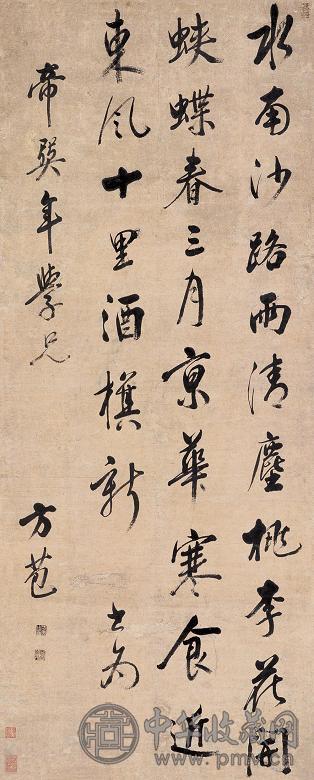 水南沙路雨清塵桃李花開
蛺蝶春三月京華寒食近
東風十里酒旗新 書為
帝巽年學兄
方苞
中华收藏网